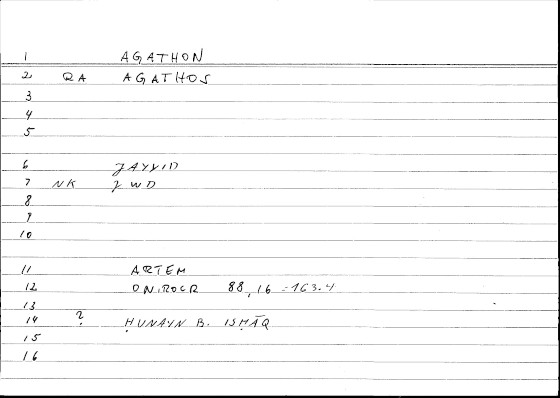 1 AGATHON
2 RA AGATHOS
3
4
5
6 ǦAYYID
7 NK ǦWD
8
9
10
11 ARTEM
12 ONIROCR 88,16 = 163.4
13
14 ? ḤUNAYN B. ISḤĀQ
15
16